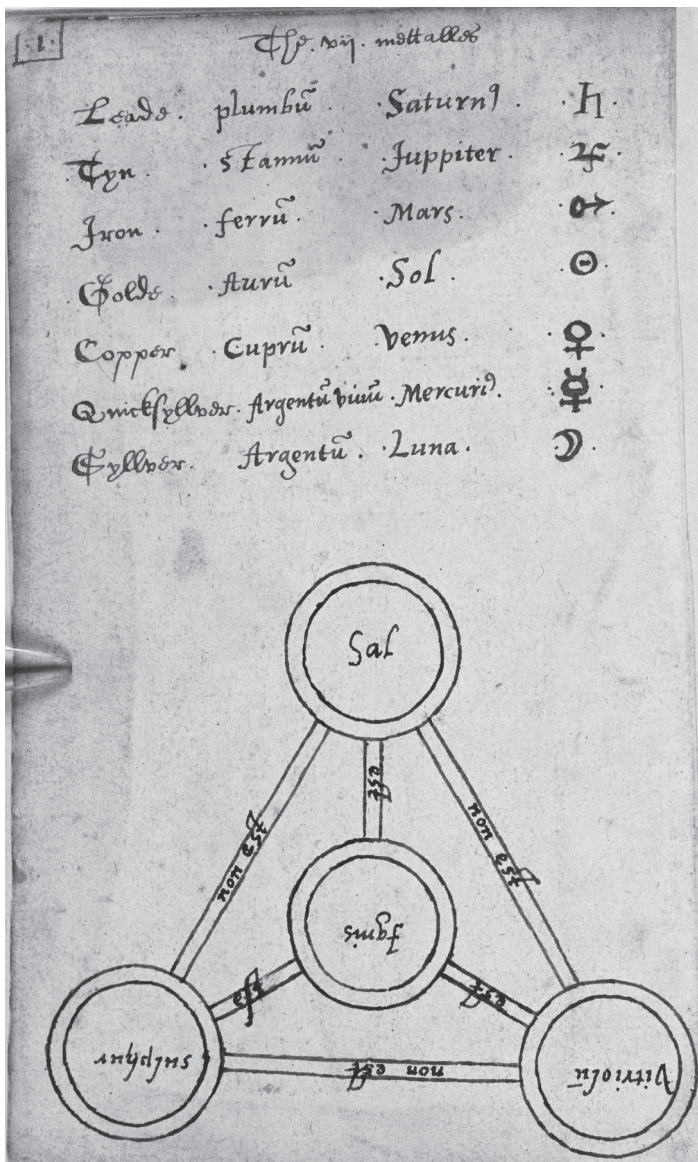 ·1·
The .vij. mettalles
Leade. plumbũ. ·Saturnꝰ. ·♄·
·Tyn. ·stannũ. ·Juppiter. ·♃·
Iron. ·ferrũ. ·Mars. ·♂·
Golde. ·Aurũ. ·Sol. ·☉·
Copper. ·Cuprũ. ·Venus. ·♀·
Quicksyllver. Argentũ viuũ. ·Mercuriꝰ. ·☿·
Syllver. ·Argentũ. ·Luna. ·☽·
Sal
est
non est
non est
Ignis
est
est
sulphur
non est
Vitriolũ